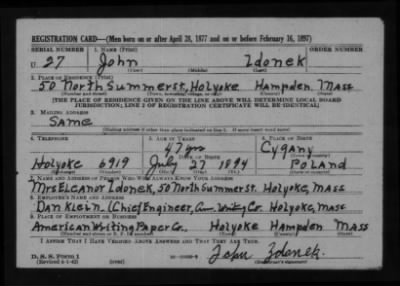 REGISTRATION CARD—(Men born on or after April 28, 1877 and on or before February 16, 1897)
SERIAL NUMBER 1. NAME (Print) ORDER NUMBER
U 27 John Zdonek
(First) (Middle) (Last)
2. PLACE OF RESIDENCE (Print)
50 North Summer st, Holyoke Hampden Mass
(Number and street) (Town, township, village, or city) (County) (State)
[THE PLACE OF RESIDENCE GIVEN ON THE LINE ABOVE WILL DETERMINE LOCAL BOARD
JURISDICTION; LINE 2 OF REGISTRATION CERTIFICATE WILL BE IDENTICAL]
3. MAILING ADDRESS
Same
[Mailing address if other than place indicated on line 2. If same insert word same]
4. TELEPHONE 5. AGE IN YEARS 6. PLACE OF BIRTH
47 yrs Cygany
DATE OF BIRTH
Holyoke 6919 July 27 1894 Poland
7. NAME AND ADDRESS OF PERSON WHO WILL ALWAYS KNOW YOUR ADDRESS
Mrs Eleanor Zdonek, 50 North Summer st. Holyoke, Mass
8. EMPLOYER'S NAME AND ADDRESS
Dan Klein, (Chief Engineer, Am. Writing Co. Holyoke, Mass
9. PLACE OF EMPLOYMENT OR BUSINESS
American Writing Paper Co. Holyoke Hampden Mass
(Number and street or R. F. D. number) (Town) (County) (State)
I AFFIRM THAT I HAVE VERIFIED ABOVE ANSWERS AND THAT THEY ARE TRUE.
D. S. S. Form 1
(Revised 4-1-42) John Zdonek
(Registrant's signature)